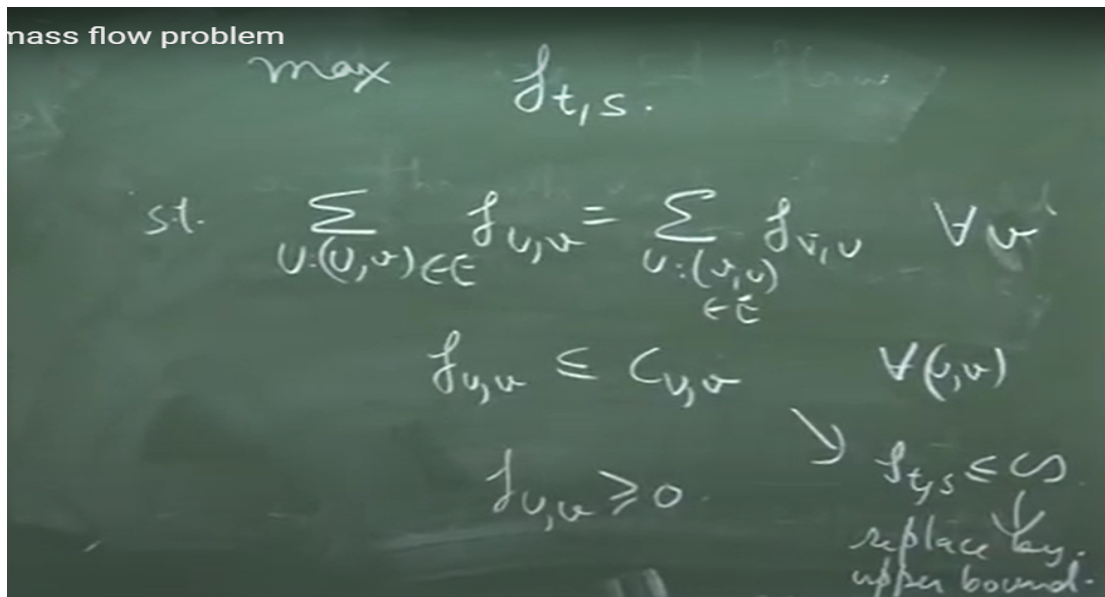 mass flow problem
max f_{t,s}.
s.t. Σ_{u:(u,v)∈E} f_{u,v} = Σ_{u:(v,u)∈E} f_{v,u} ∀v
f_{u,v} ≤ c_{u,v} ∀(u,v)
↘ f_{t,s} ≤ ∞
f_{u,v} ≥ 0.
↓
replace by
upper bound.